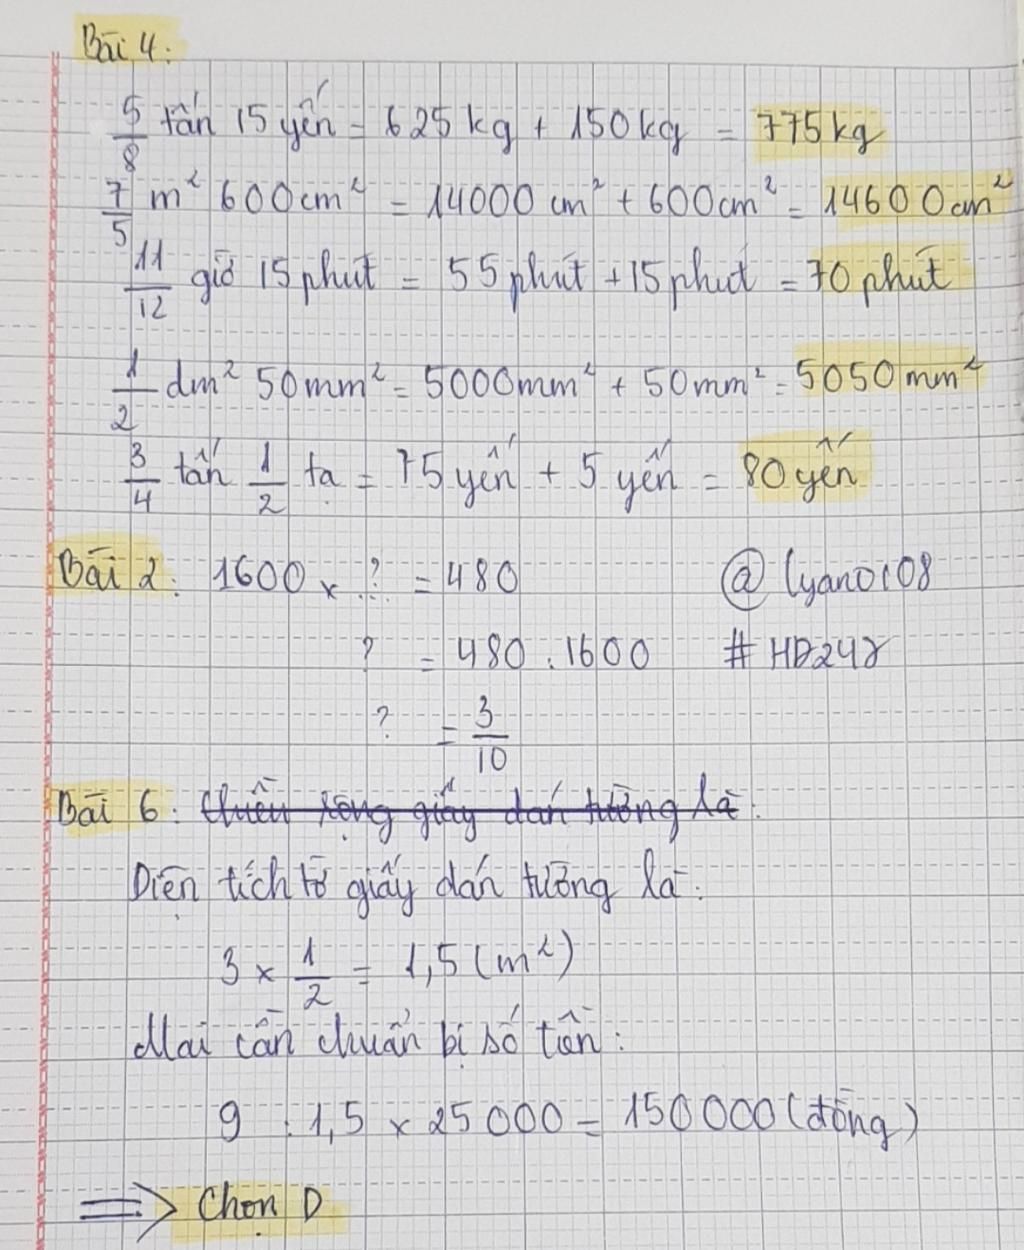 Bài 4:
5/8 tấn 15 yến = 625kg + 150kg = 775kg
7/5 m² 600cm² = 14000 cm² + 600cm² = 14600cm²
11/12 giờ 15 phút = 55 phút + 15 phút = 70 phút
1/2 dm² 50mm² = 5000mm² + 50mm² = 5050mm²
3/4 tấn 1/2 tạ = 75 yến + 5 yến = 80 yến
Bài 2: 1600 x ? = 480
? = 480 : 1600
? = 3/10
@lyano108
#HD247
Bài 6: Chiều rộng giấy dán tường là:
Diện tích tờ giấy dán tường là:
3 x 1/2 = 1,5 (m²)
Mai cần chuẩn bị số tiền:
9 : 1,5 x 25 000 = 150 000 (đồng)
=> Chọn D